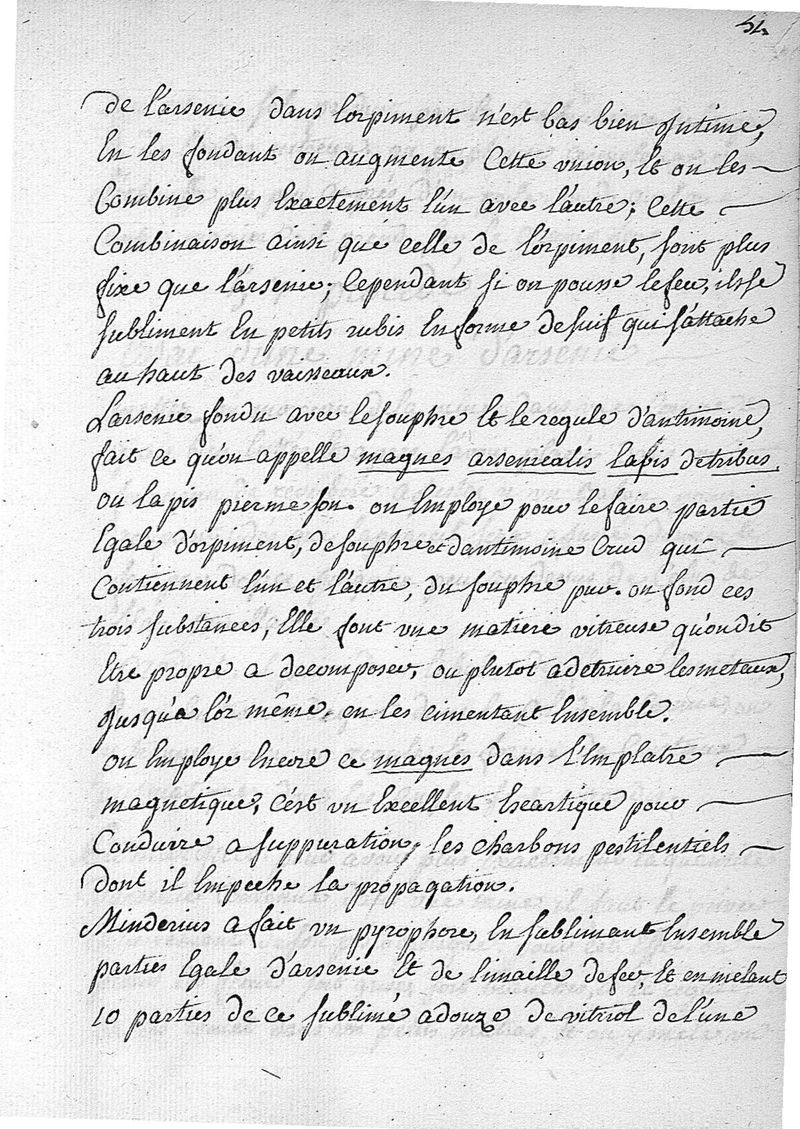 54
de l'arsenic dans l'orpiment n'est pas bien Intime,
En les fondant on augmente Cette vnion, Et on les
Combine plus Exactement l'un avec l'autre; Cette
Combinaison ainsi que celle de l'orpiment, sont plus
fixe que l'arsenic; Cependant si on pousse le feu, ils se
subliment En petits rubis En forme de suif qui s'attache
au haut des vaisseaux.
L'arsenic fondu avec le souphre Et le regule d'antimoine,
fait ce qu'on appelle magnes arsenicalis lapis de tribus,
ou lapis pierme son. on Employe pour le faire partie
Egale d'orpiment, de souphre et d'antimoine Crud qui
Contiennent l'un et l'autre, du souphre pur. on fond ces
trois substances, Elle font vne matiere vitreuse qu'on dit
Etre propre a decomposer, ou plutot a detruire les metaux,
Jusqu'a l'or même, en les cimentant Ensemble.
on Employe Encore ce magnes dans l'Emplatre
magnetique, c'est vn Excellent Escartique pour
Conduire a suppuration, les charbons pestilentiels
dont il Empeche la propagation.
Minderius a fait vn pyrophore, En sublimant Ensemble
parties Egale d'arsenic Et de limaille de fer, Et en mélant
10 parties de ce sublimé a douze de vitriol de lune